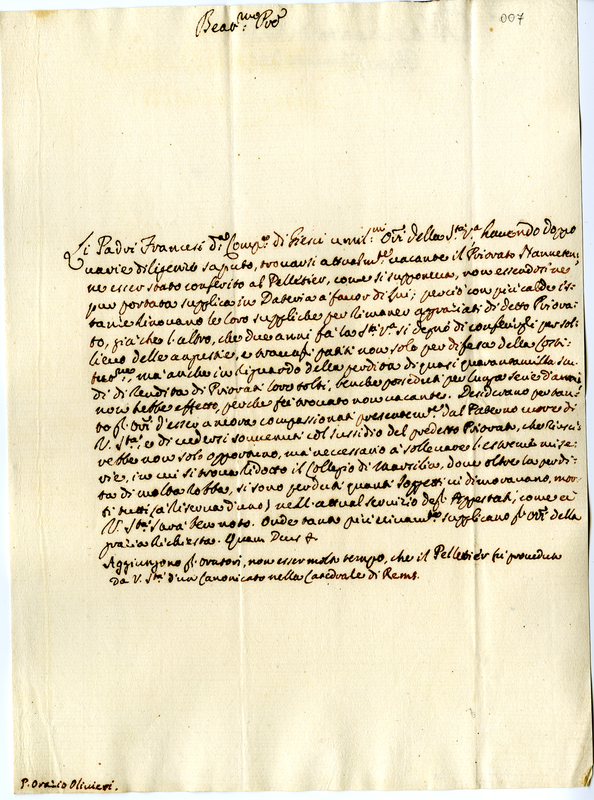 007
Beat.mo P're
Li Padri Francesi d.a Comp.a di Giesù umil.mi Ori della S.tà V.a havendo doppo
varie diligenze saputo, trovarsi attualm.te vacante il Priorato
ne esser stato conferito al Pelletier, come si supponeva, non essendosi ne
pur portata supplica in Dataria a favor di lui; perciò con più calde is-
tanze rinovano le loro suppliche per rimaner aggraziati di detto Priora-
to, già che l'altro, che due anni fà la S.tà V.a si degnò di conferirgli per sol-
lievo delle angustie, e travagli patiti non solo per difesa della Costi-
tut.ne, mà anche in riguardo della perdita di quasi quarantamilla scu-
di di rendita di Priorati loro tolti, benche posseduti per lunga serie d'anni
non hebbe effetto, perche fù trovato non vacante. Desiderano per tan-
to gl'Ori d'esser di nuovo compassionati presentem.te dal Paterno cuore di
V. S.tà, e di vedersi sovvenuti col sussidio del predetto Priorato, che riusci-
rebbe non solo opportuno, mà necessario a sollevare l'estreme mise-
rie, in cui si trova ridotto il Collegio di Marsilia, dove oltre la perdi-
ta di molta robba, si sono perduti quanti soggetti vi dimoravano, mor-
ti tutti (a riserva d'uno) nell'attual servizio degl'Appestati, come a
V. S.tà sarà ben noto. Onde tanto più vivam.te supplicano gl'Ori della
grazia richiesta. Quam Deus &
Aggiungono gl'oratori, non esser molto tempo, che il Pelletier fù proveduto
da V. S.tà d'un Canonicato nella Catedrale di Rems.
P. Orazio Olivieri.